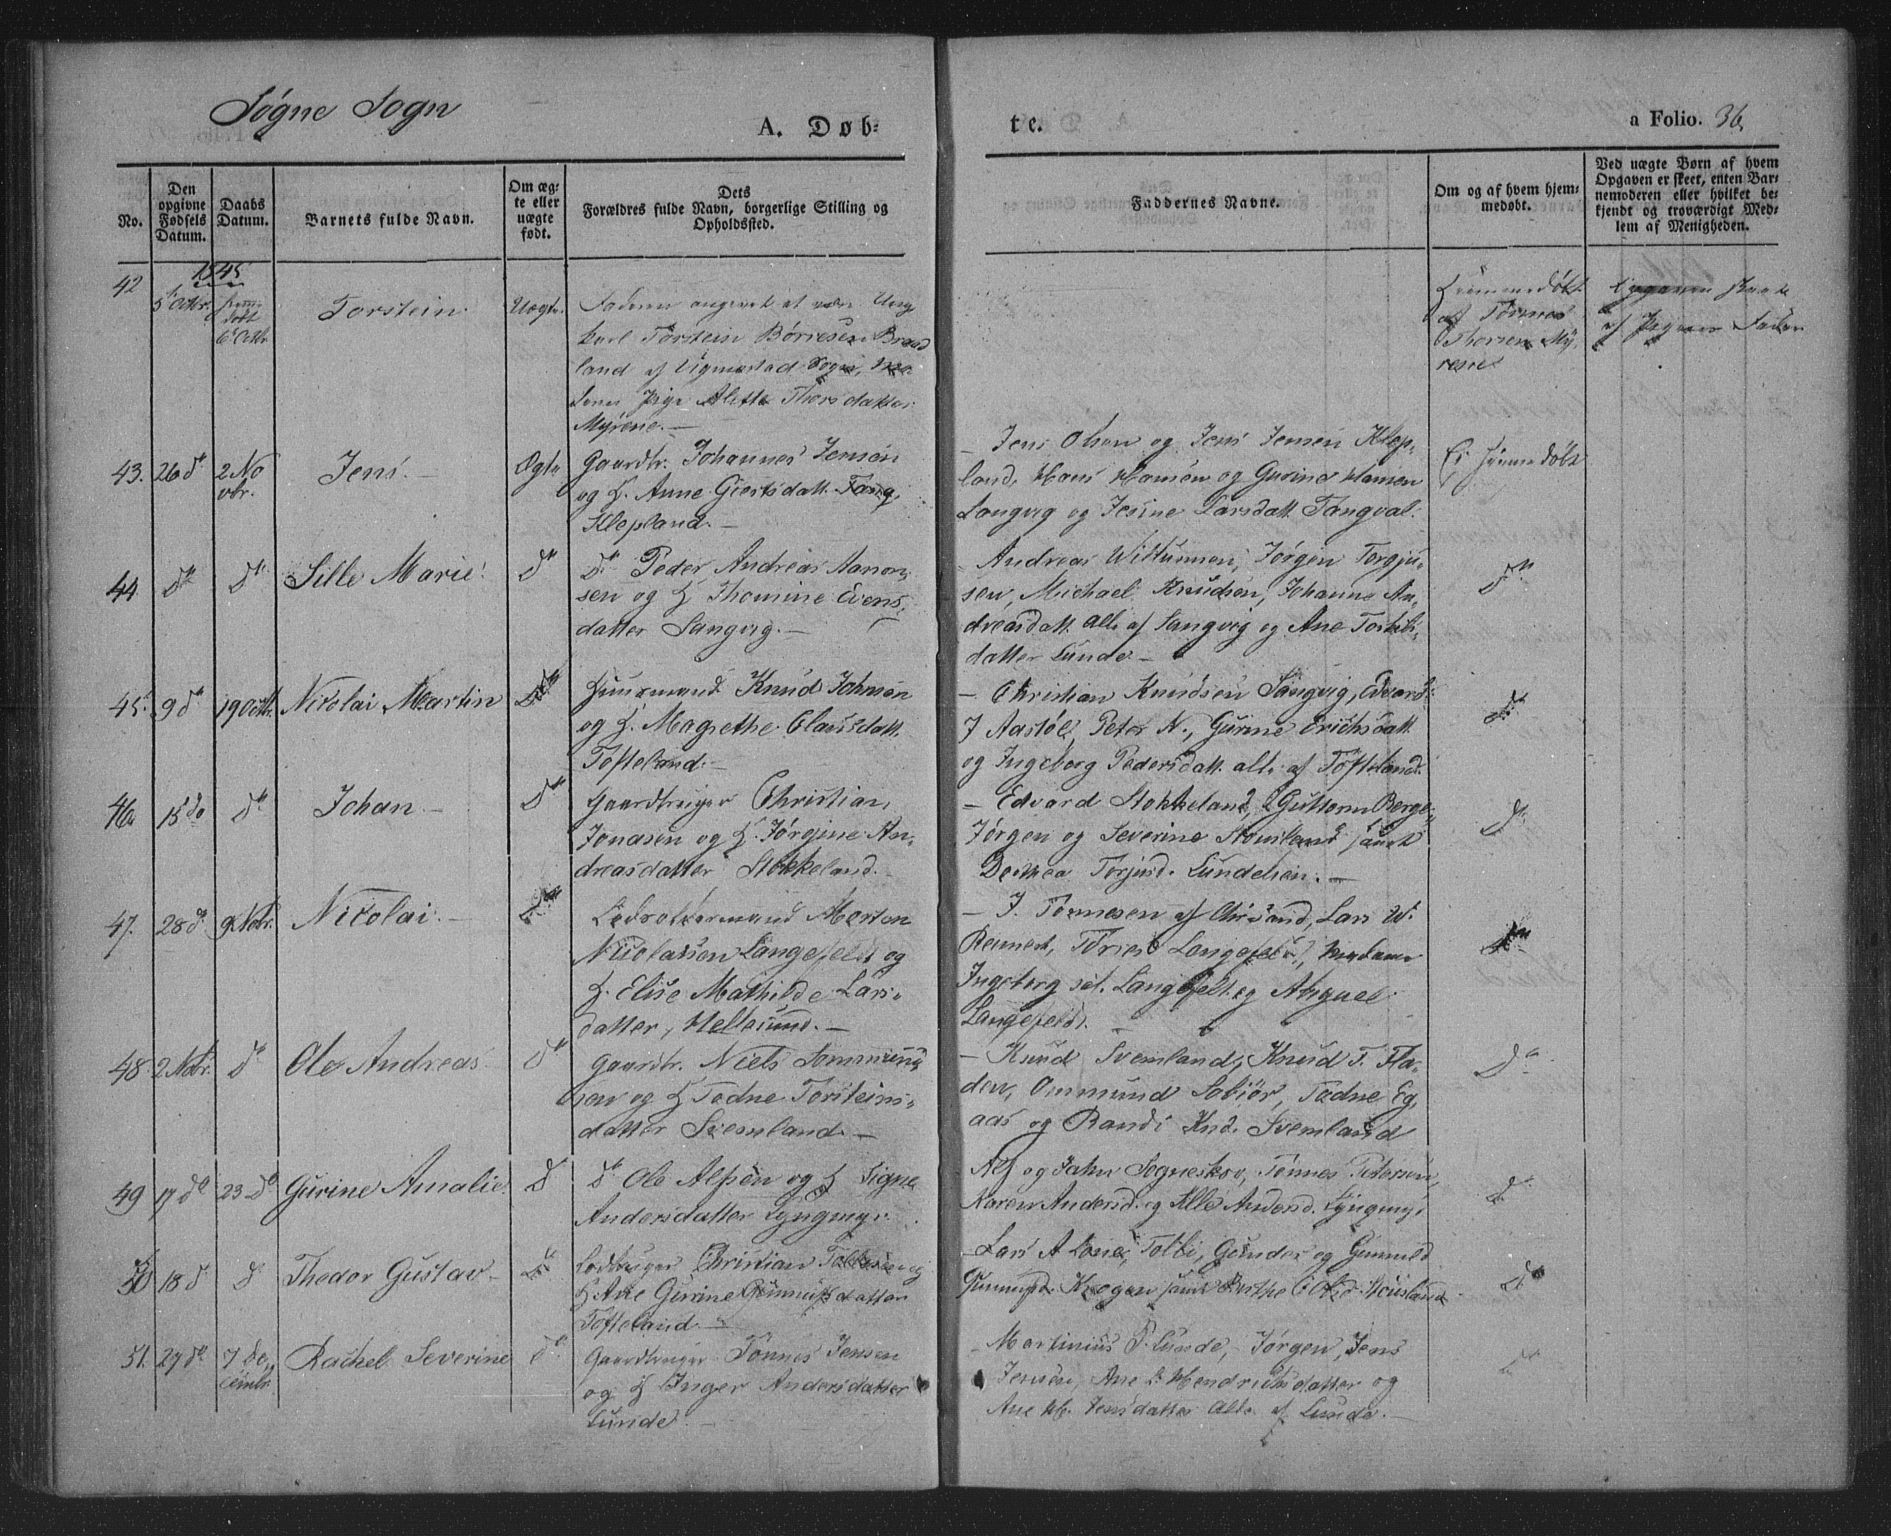 Søgne Sogn
A. Døb-
te.
a Folio. 36,
No.
Den opgivne Fødsels Datum.
Daabs Datum.
Barnets fulde Navn.
Om ægte eller uægte født.
Dets
Forældres fulde Navn, borgerlige Stilling og
Opholdssted.
Faddernes Navne.
Om og af hvem hjem-
medøbt.
Ved uægte Børn af hvem
Opgaven er skeet, enten Bar-
nemoderen eller hvilket be-
kjendt og troværdigt Med-
lem af Menigheden.
1845
42
5t Octbr.
hjem-
døbt
6t Octbr
Torstein
Uægte
Faderen angivet at være Ung
karl Torstein Børresen Braad
land af Vigmostad Sogn, Mo-
deren Pige Alette Thorsdatter
Myrene.—
Hjemmedøbt
af Tønnes
Thorsen My-
rene
Opgaven
af Pigens Fader
43.
26 do
2 No
vbr.
Jens.—
Ægte
Gaardbr. Johannes Jensen
og H. Anne Giertsdatt.
Klepland.—
— Jens Olsen og Jens Jensen Klep-
land, Hans Hansen og Gurine Hansen
Langvig og Jesine Larsdatt. Tangval.
Ei hjemmedøbt
44.
do
do
Sille Marie.
do
do Peder Andreas Aanon-
sen og H Thomine Evens-
datter Langvig.—
— Andreas Wittunnen, Jørgen Torgju-
sen, Michael Knudsen, Johanne An-
dreasdatt. alle af Langvig og Ane
datter Lunde.—
do
45.
9 do
19 Octbr.
Nicolai Martin
do
Huusmand Knud Johnsen
og H. Magrethe Clausdatt.
Tofteland.—
— Christian Knudsen Langvig, Edvard
J Aastøl, Peter N., Gurine Erichsdatt.
og Ingeborg Pedersdatt. alle af Tofteland.
do
46.
15 do
do
Johan.—
do
Gaardbruger Christian
Jonasen og H. Jørgine An-
dreasdatter Stokkeland.
— Edvard Stokkeland, Guttorm Berge,
Jørgen og Severine samt
Torjusd. Lundeheien.—
do
47.
28 do
9 Nobr.
Nicolai.—
do
Morten
Nicolaisen Langefeldt og
H. Elise Mathilde Lars-
datter, Hellesund.—
— J. Tønnesen af Chrsand, Lars W.
Langefeldt, Madame
Ingeborg sel. Langefelt og Abigael
Langefeldt.
do
48.
2 Nobr.
do
Ole Andreas
do
Gaardbr. Niels Sommund
sen og H Tadne Torsteins-
datter Svemland.—
— Knud Svemland, Knud T. Fla-
den, Ommund Tadne Eg-
aas og Randi Knd. Svemland
do
49
17 do
23 do
Gurine Amalie.
do
do Ole Alfsen og H Signe
Andersdatter Lyngmyr.
Alf og Jahn Sogneskov, Tønnes Pedersen,
Karen Andersd. og Lyngmyr
do
50
18 do
do
Thedor Gustav—
do
Christian
H Ane Gurine Gunnufsdatter
Tofteland.—
— Lars A Lone, Gunder og Gunnuld
Krogen samt Berthe
do
51.
27 do
7 De-
cembr
Rachel Severine
do
Gaardbruger Tønnes Jensen
og H Inger Andersdatter
Lunde.—
— Martinius P. Lunde, Jørgen, Jens
Jensen, Ane Hendrichsdatter og
Ane M. Jensdatter alle af Lunde.—
do